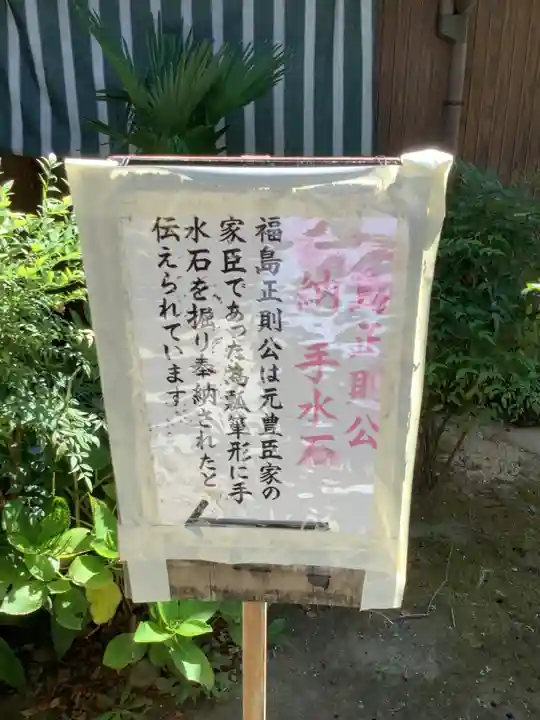 島正則公
納 手水石
福島正則公は元豊臣家の
家臣であった為瓢箪形に手
水石を掘り奉納されたと
伝えられています…